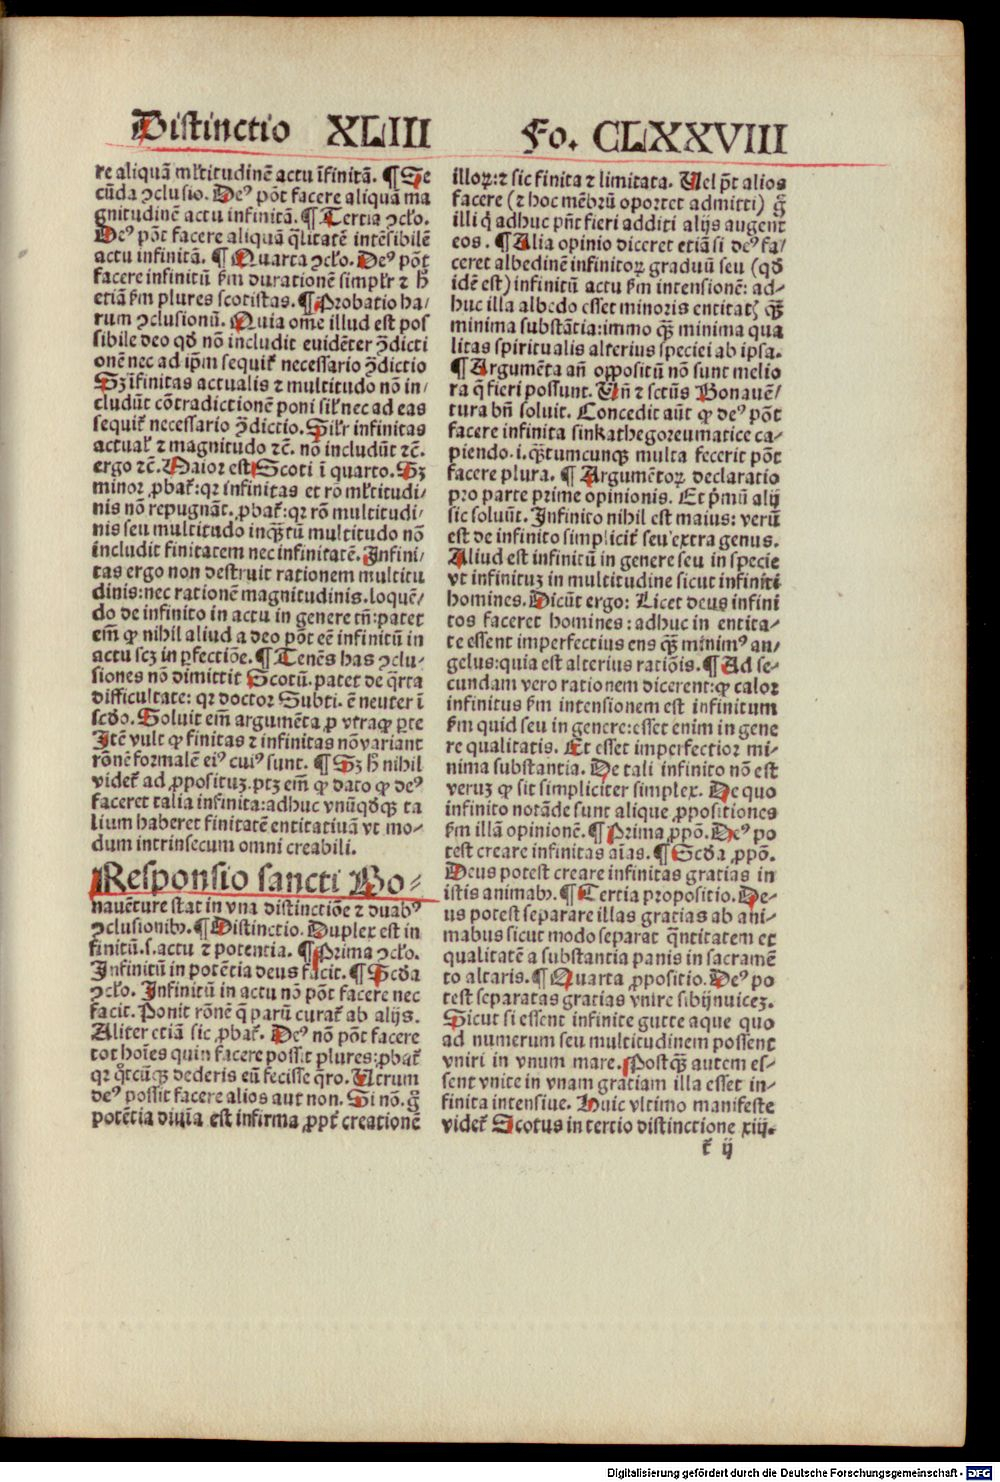 Distinctio XLIII
Fo. CLXXVIII
re aliquā mĺtitudinē actu īfinitā. ¶ Se
cūda ↄclusio. Deꝰ pōt facere aliquā ma
gnitudinē actu infinitā. ¶ Tertia ↄcło.
Deꝰ pōt facere aliquā q̄litatē intēsibilē
actu infinitā. ¶ Quarta ↄcło. Deꝰ pōt
facere infinitū ẜm durationē simplr̄ ⁊ h̄
etiā ẜm plures scotistas. ¶ Probatio ha/
rum ↄclusionū. Quia om̄e illud est pos
sibile deo qd̄ nō includit euidēter ↄ̄dicti
onē nec ad ip̄m sequit̄ necessario ↄ̄dictio
Sꝫ īfinitas actualis ⁊ multitudo nō in/
cludūt cōtradictionē poni sił nec ad eas
sequit̄ necessario ↄ̄dictio. Silr̄ infinitas
actuał ⁊ magnitudo ⁊c̄. nō includūt ⁊c̄.
ergo ⁊c̄. Maior est Scoti ī quarto. Sꝫ
minor ꝓbat̄: qꝛ infinitas et rō mĺtitudi/
nis nō repugnāt. ꝓbat̄: qꝛ rō multitudi/
nis seu multitudo inqꝫ̄tū multitudo nō
includit finitatem nec infinitatē. Infini/
tas ergo non destruit rationem multitu
dinis: nec rationē magnitudinis. loquē/
do de infinito in actu in genere tn̄: patet
em̄ ꝙ nihil aliud a deo pōt eē infinitū in
actu scꝫ in ꝑfectiōe. ¶ Tenēs has ↄclu-
siones nō dimittit Scotū. patet de q̄rta
difficultate: qꝛ doctor Subti. ē neuter ī
scd̄o. Soluit em̄ argumēta ꝓ vtraqꝫ ꝑte
Itē vult ꝙ finitas ⁊ infinitas nō variant
rōnē formalē eiꝰ cuiꝰ sunt. ¶ Sꝫ h̄ nihil
videt̄ ad ꝓposituꝫ. ptꝫ em̄ ꝙ dato ꝙ deꝰ
faceret talia infinita: adhuc vnūqd̄qꝫ ta
lium haberet finitatē entitatiuā vt mo-
dum intrinsecum omni creabili.
Responsio sancti Bo-
nauēture stat in vna distinctiōe ⁊ duabꝰ
ↄclusionibꝫ. ¶ Distinctio. Duplex est in
finitū. s. actu ⁊ potentia. ¶ Prima ↄcło.
Infinitū in potētia deus facit. ¶ Scd̄a
ↄcło. Infinitū in actu nō pōt facere nec
facit. Ponit rōnē q̄ parū curat̄ ab alijs.
Aliter etiā sic ꝓbat̄. Deꝰ nō pōt facere
tot hoīes quin facere possit plures: ꝓbat̄
qꝛ qͦtcūqꝫ dederis eū fecisse q̄ro. Utrum
deꝰ possit facere alios aut non. Si nō. g̃
potētia diuīa est infirma ꝓpt̄ creationē
illoꝝ: ⁊ sic finita ⁊ limitata. Uel pōt alios
facere (⁊ hoc mēbrū oportet admitti) g̃
illi q̇ adhuc pn̄t fieri additi alijs augent
eos. ¶ Alia opinio diceret etiā si deꝰ fa/
ceret albedinē infinitoꝝ graduū seu (qd̄
idē est) infinitū actu ẜm intensionē: ad-
huc illa albedo esset minoris entitatꝭ qꝫ̄
minima substātia: immo qꝫ̄ minima qua
litas spiritualis alterius speciei ab ipsa.
¶ Argumēta an̄ oppositū nō sunt melio
ra q̄ fieri possunt. Un̄ ⁊ sctūs Bonauē/
tura bn̄ soluit. Concedit aūt ꝙ deꝰ pōt
facere infinita sinkathegoreumatice ca-
piendo. i. qꝫ̄tumcunqꝫ multa fecerit pōt
facere plura. ¶ Argumētoꝝ declaratio
pro parte prime opinionis. Et p̄mū alij
sic soluūt. Infinito nihil est maius: verū
est de infinito simplicit̄ seu extra genus.
Aliud est infinitū in genere seu in specie
vt infinituꝫ in multitudine sicut infiniti
homines. Dicūt ergo: Licet deus infini
tos faceret homines: adhuc in entita-
te essent imperfectius ens qꝫ̄ minimꝰ an-
gelus: quia est alterius ratiōis. ¶ Ad se-
cundam vero rationem dicerent: ꝙ calor
infinitus ẜm intensionem est infinitum
ẜm quid seu in genere: esset enim in gene
re qualitatis. Et esset imperfectior mi-
nima substantia. De tali infinito nō est
veruꝫ ꝙ sit simpliciter simplex. De quo
infinito notāde sunt alique ꝓpositiones
ẜm illā opinionē. ¶ Prima ꝓpō. Deꝰ po
test creare infinitas aīas. ¶ Scd̄a ꝓpō.
Deus potest creare infinitas gratias in
istis animabꝫ. ¶ Tertia propositio. De-
us potest separare illas gratias ab ani-
mabus sicut modo separat q̄ntitatem et
qualitatē a substantia panis in sacramē
to altaris. ¶ Quarta ꝓpositio. Deꝰ po
test separatas gratias vnire sibijnuiceꝫ.
Sicut si essent infinite gutte aque quo
ad numerum seu multitudinem possent
vniri in vnum mare. Postqꝫ̄ autem es-
sent vnite in vnam gratiam illa esset in-
finita intensiue. Huic vltimo manifeste
videt̄ Scotus in tertio distinctione xiij.
t̄ ij
Digitalisierung gefördert durch die Deutsche Forschungsgemeinschaft - DFG